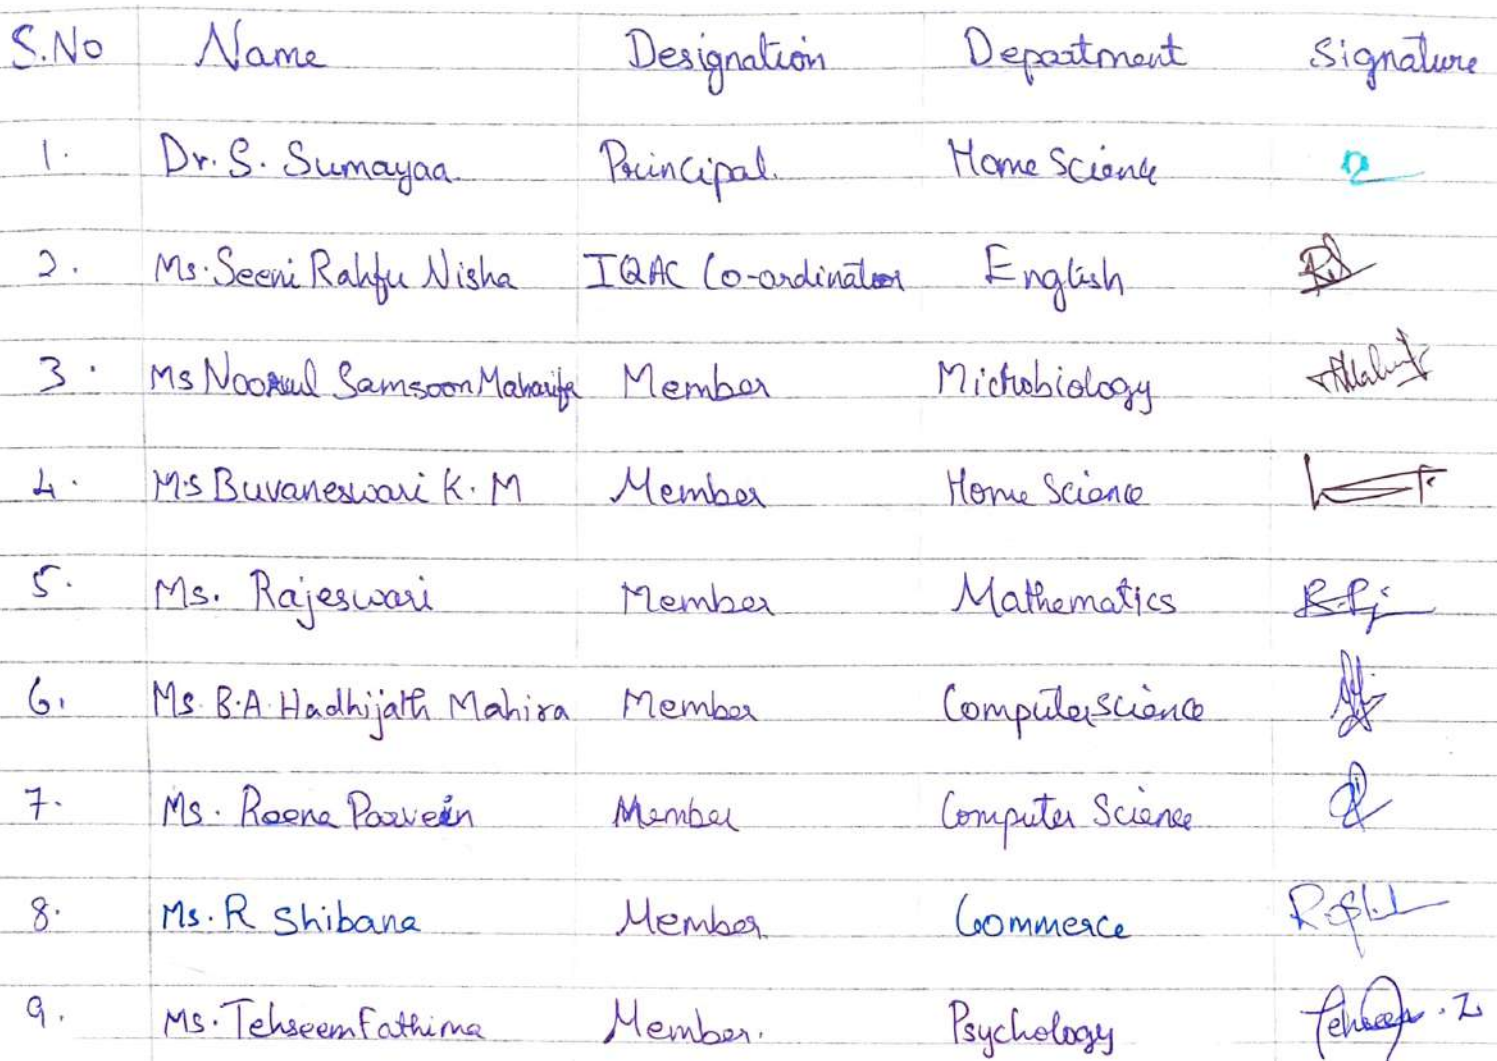 S.No Name Designation Department Signature
1. Dr. S. Sumayaa Principal. Home Science
2. Ms. Seeni Rahfu Nisha IQAC Co-ordinator English
3. Ms Noorul Samsoon Maharifa Member Microbiology
4. Ms Buvaneswari K. M Member Home Science
5. Ms. Rajeswari Member Mathematics
6. Ms. B.A. Hadhijath Mahira Member Computer science
7. Ms. Reena Parvein Member Computer Science
8. Ms. R Shibana Member Commerce
9. Ms. Tehseem Fathima Member. Psychology